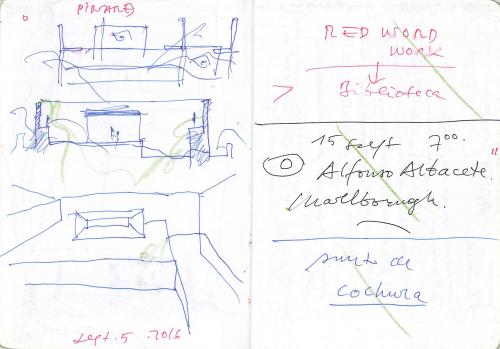 sept. 5 . 2016
RED WORD
WORK
Biblioteca
15 sept 7⁰⁰.
Alfonso Albacete.
Marlborough.
punto de
cochura